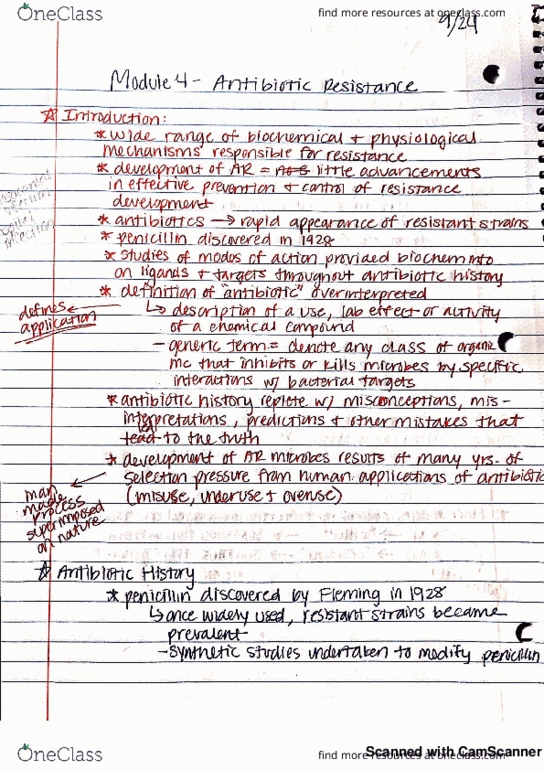 OneClass
find more resources at oneclass.com
9/24
Module 4 - Antibiotic Resistance
Introduction:
* wide range of biochemical + physiological
mechanisms responsible for resistance
* development of AR = little advancements
in effective prevention + control of resistance
development
* antibiotics → rapid appearance of resistant strains
* penicillin discovered in 1928
* studies of modos of action provided biochem into
on ligands + targets throughout antibiotic history
* definition of "antibiotic" overinterpreted
defines
application
↳ description of a use, lab effect or activity
of a chemical compound
- generic term = denote any class of organic
mc that inhibits or kills microbes by specific
interactions w/ bacterial targets
* antibiotic history replete w/ misconceptions, mis-
interpretations, predictions + other mistakes that
led
to the truth
* development of AR microbes results of many yrs. of
selection pressure from human applications of antibiotic
(misuse, underuse + overuse)
man
made
process
superimposed
on nature
Antibiotic History
* penicillin discovered by Fleming in 1928
↳ once widely used, resistant strains became
prevalent
- synthetic studies undertaken to modify penicillin
OneClass
find more resources at oneclass.com
Scanned with CamScanner